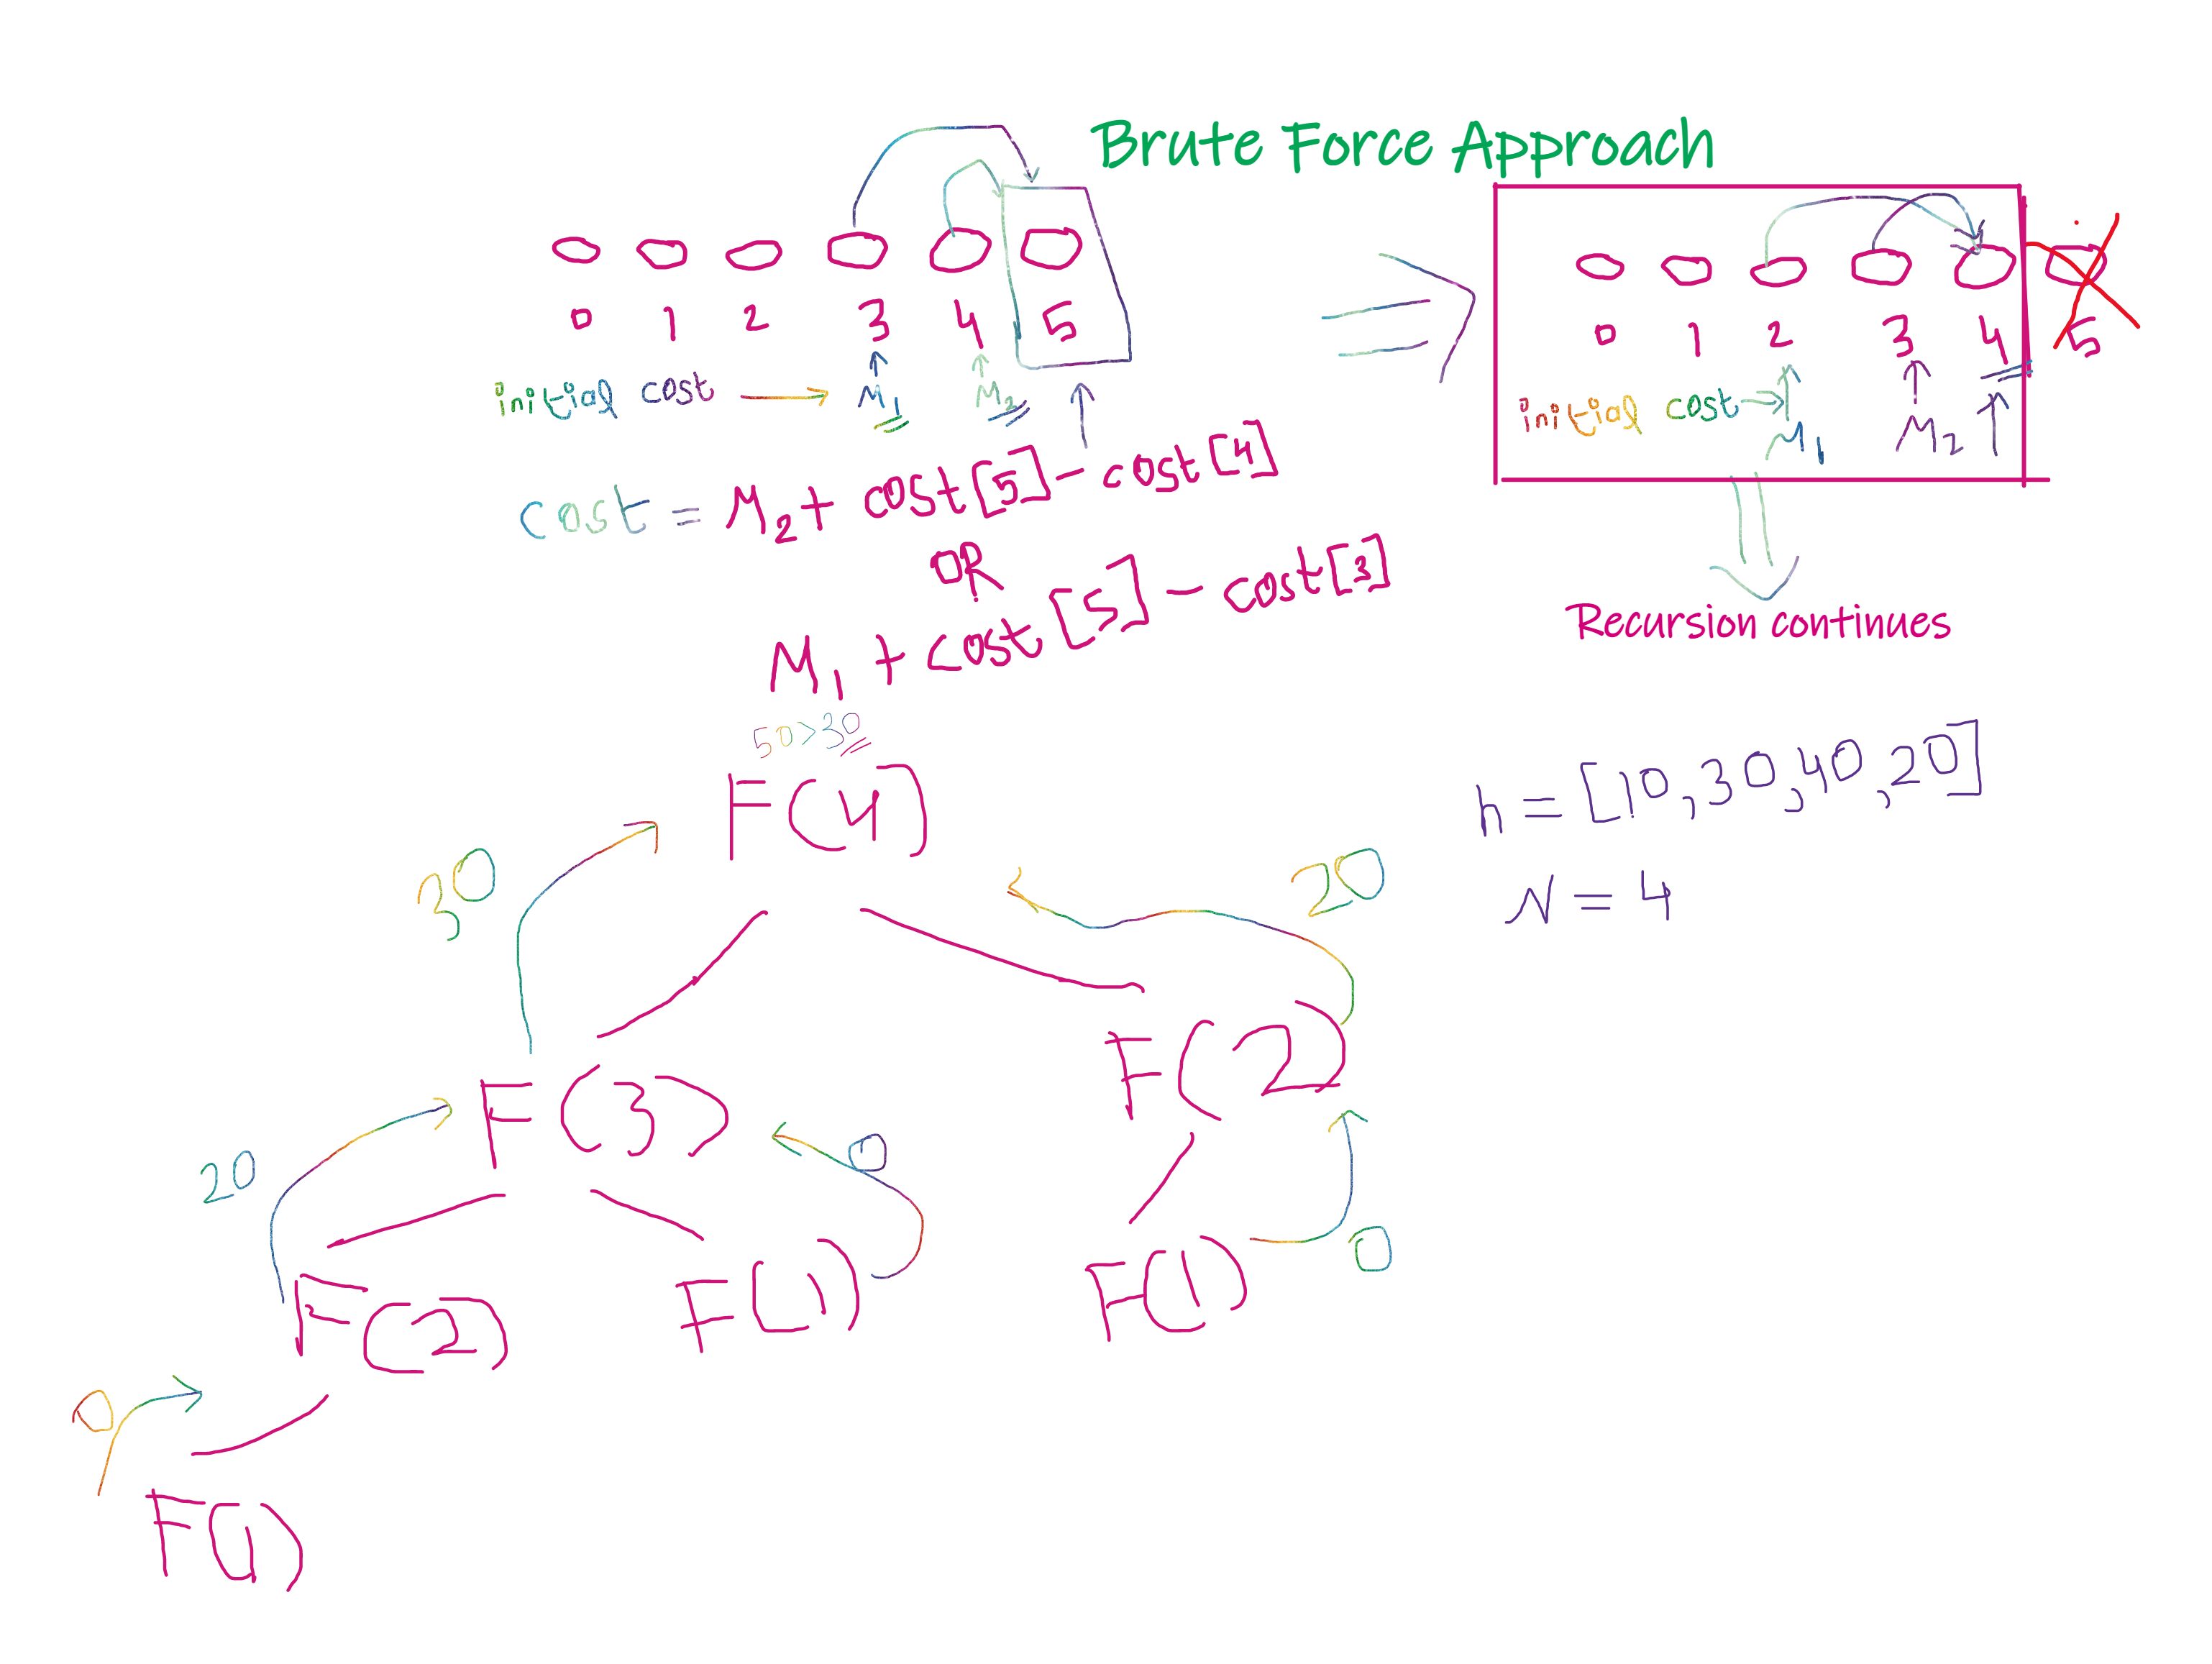 Brute Force Approach
0 1 2 3 4 5
initial cost M1 M2
cost = M2 + cost[5] - cost[4]
OR
M1 + cost[5] - cost[3]
0 1 2 3 4 5
initial cost M1 M2
Recursion continues
h = [10,30,40,20]
N = 4
50>30
F(4)
30
20
F(3)
F(2)
20
0
F(2)
F(1)
F(1)
0
0
F(1)